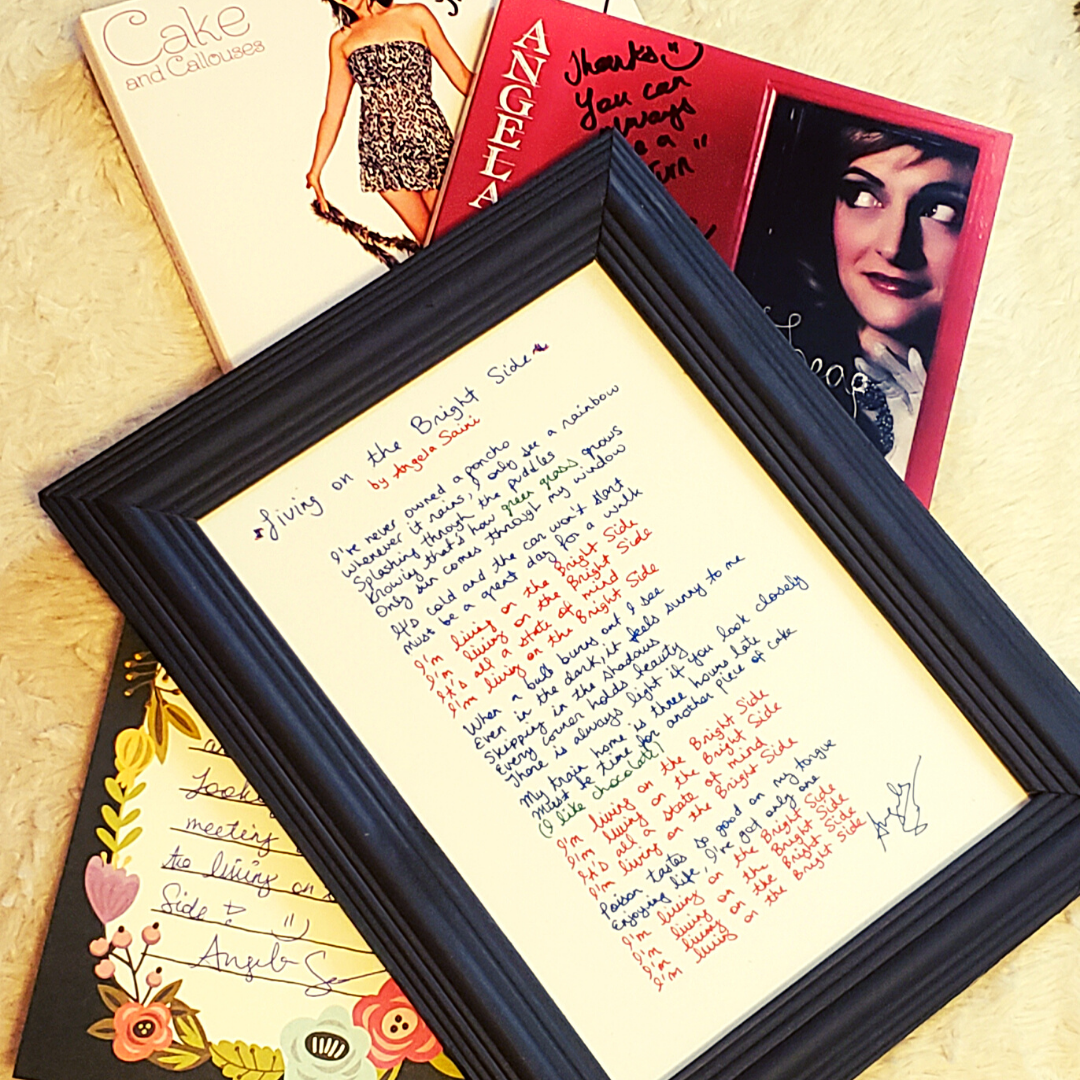 Cake
and Callouses
ANGELA
Thanks
You can
always
a
Leap
Living on the Bright Side
by Angela Saini
I've never owned a poncho
Whenever it rains, I only see a rainbow
Splashing through the puddles
Knowing that's how green grass grows
Only sun comes through my window
It's cold and the car won't start
Must be a great day for a walk
I'm living on the Bright Side
I'm living on the Bright Side
It's all a state of mind
I'm living on the Bright Side
When a bulb burns out I see
Even in the dark, it feels sunny to me
Skipping in the shadows
Every corner holds beauty
There is always light if you look closely
My train home is three hours late
Must be time for another piece of cake
(I like chocolate!)
I'm living on the Bright Side
I'm living on the Bright Side
It's all a state of mind
I'm living on the Bright Side
Poison tastes so good on my tongue
Enjoying life, I've got only one
I'm living on the Bright Side
I'm living on the Bright Side
I'm living on the Bright Side
I'm living on the Bright Side
meeting
to living on
Side
Angela